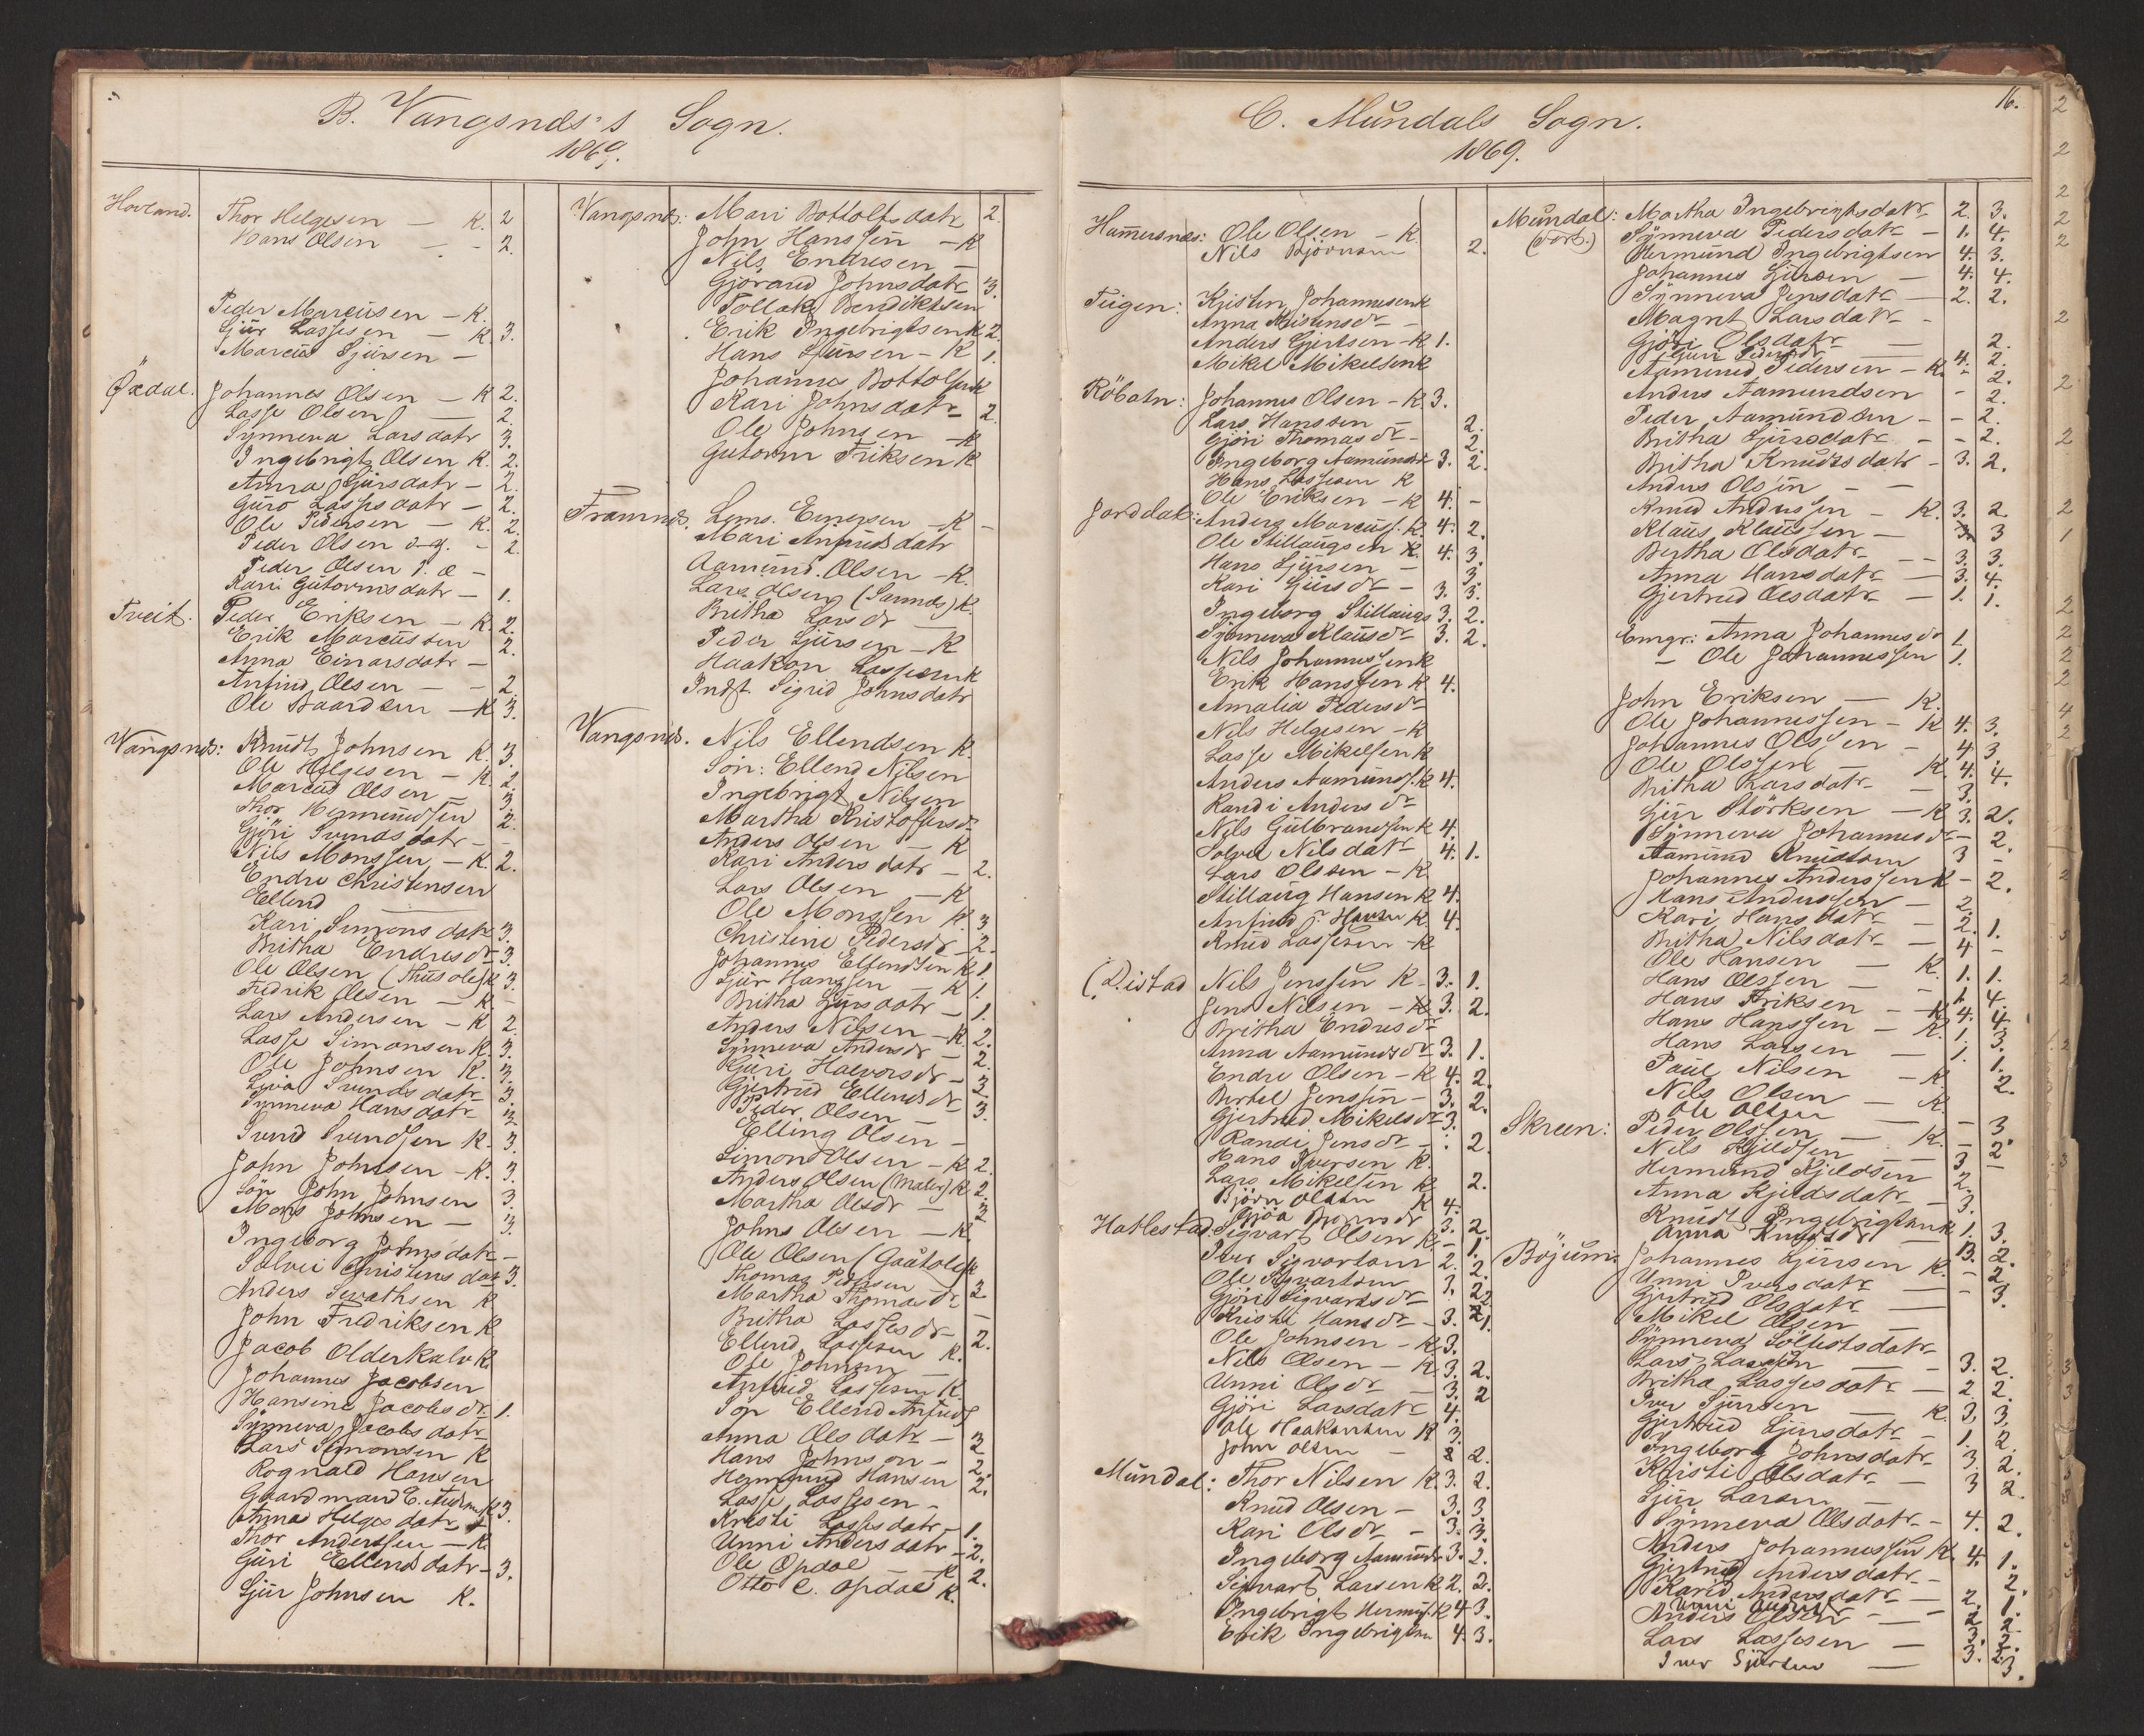 B. Vangsnds's Sogn.
1869.
Hovland. Thor Helgesen — K. 2
Hans Olsen — - 2.
Peder Marcusen — K.
Sjur Lassesen — K. 3.
Marcus Sjursen —
Öxdal. Johannes Olsen — K 2.
Lasse Olsen — 2.
Synneva Larsdatr 3.
Ingebrigt Olsen K. 2.
Anna Sjursdatr — 2.
Guro Lassesdatr — 2.
Ole Pedersen — K. 2.
Peder Olsen d.y. - 2.
Peder Olsen d. æ —
Kari Gutormsdatr — 1.
Tveit. Peder Eriksen — K. 2.
Erik Marcussen 2.
Anna Einarsdatr —
Anfind Olsen — - 2.
Ole Baardsen — K 3.
Vangsnds: Knudt Johnsen K. 3.
Ole Helgesen — K. 2.
Marcus Olsen — 3.
Thor Hermundsen 2.
Gjöri Svendsdatr —
Nils Monssen — K. 2.
Endre Christensen
Ellend —
Kari Simonsdatr 3.
Britha Endresdr 3.
Ole Olsen (Thus ole) K 3.
Fredrik Olsen — K. -
Lars Andersen — K 2.
Lasse Simonsen K. 3.
Ole Johnsen K. 3.
Livia Svendsdatr 3.
Synneva Hansdatr 3
Svend Svendsen K. 3.
John Johnsen — K. 3.
Sön John Johnsen 3.
Mons Johnsen — 3.
Ingeborg Johnsdatr —
Solvei Christensdatr 3.
Anders Sevathsen K
John Fredriksen K
Jacob Olderkalv K.
Johannes Jacobsen
Hansine Jacobsdr 1.
Synneva Jacobsdatr
Lars Simonsen K
Rognald Hansen
Gaardmand E. K 3.
Anna Helgesdatr
Thor Anderssen — K.
Guri Ellendsdatr — 3.
Sjur Johnsen K.
Vangsnds: Mari Bottolfsdatr 2.
John Hanssen — K
Nils Endresen —
Gjöraud Johnsdatr 3.
Tollak Bendiktsen
Erik Ingebrigtsen K 2.
Hans Sjursen — K 1.
Johannes Bottolfsen K
Kari Johnsdatr 2.
Ole Johnsen — K
Gutorm Eriksen K
Framnds. Lens. — K —
Mari Anfindsdatr
Aamund Olsen — K.
Lars Olsen K.
Britha Larsdr —
Peder Sjursen — K
Haakon Lassesen K
Indst Sigrid Johnsdatr
Vangsnds. Nils Ellendsen K.
Sön: Ellend Nilsen
Ingebrigt Nilsen
Martha Kristofersdr
Anders Olsen — K
Kari Andersdatr — 2.
Lars Olsen — K
Ole Monssen K. 3
Christine Pedersdr 2.
Johannes Ellendsen K 1.
Sjur Hanssen — K 1.
Britha Sjursdatr — 1.
Anders Nilsen — K. 2.
Synneva Andersdr — 2.
Kjuri Halvorsdr — 3
Gjertrud Ellendsdr 3.
Peder Olsen —
Elling Olsen —
Simond Olsen — K 2.
Anders Olsen (Maler) K 2.
Martha Olsdr — 3
Johns Olsen — K.
Ole Olsen K
Thomas Pedersen —
Martha Thomasdr 2
Britha Lassesdr —
Ellend Lassesen K. 2.
Ole Johnsen —
Anfind Lassesen K.
Sön Ellend Anfinds
Anna Olsdatr — 3
Hans Johnson — 2
Hermund Hansen 2.
Lasse Lassesen —
Kristi Lassesdatr — 1.
Unni Andersdatr — 2.
Ole Opdal — K 2.
Otto E. Opdal K.
C. Mundals Sogn.
1869.
16.
Hamersnæs: Ole Olsen — K.
Nils Björnsen 2.
Teigen: Kristen Johannesen K
Anna Kristensdr —
Anders Gjertsen — K 1.
Mikel Mikelsen K
Röbotn: Johannes Olsen — K. 3.
Lars Hanssen — 2.
Gjöri Thomasdr — 2.
Ingeborg Aamundsdr 3. 2.
Hans Lassesen K
Ole Eriksen — K 4. -
Jorddal: Anders Marcuss. K. 4. 2.
Ole Stillaugsen K. 4. 3.
Hans Sjursen — 3.
Kari Sjursdr — 3. 3.
Ingeborg Stillaugs 3. 2.
Synneva Klausdr 3. 2.
Nils Johannessen K
Erik Hanssen K. 4.
Amalia Pedersdr
Nils Helgesen — K
Lasse Mikelsen K
Anders Aamundss. K 4.
Randi Andersdr
Nils Gulbrandsen K 4.
Solvei Nilsdatr 4. 1.
Lars Olssen — K
Stillaug Hansen K 4.
Anfind J. Hansen K. 4.
Knud Lassesen K
Distad Nils Jenssen K — 3. 1.
Jens Nilsen — K 3. 2.
Britha Endresdr
Anna Aamundsdr 3. 1.
Endre Olsen — K 4. 2.
Bertel Jenssen — 3. 2.
Gjertrud Mikelsdr 3.
Randi Jensdr — : 2.
Hans Iversen K.
Lars Mikelsen K 2.
Björn Olsen K 4.
Gjöa Björnsdr 3. 2.
Hatlestad. Sigvart Olsen K. - 1.
Iver Sigvartsen 2. 2.
Ole Sigvartsen 3. 2
Gjöri Sigvartsdr — 2
Kristi Hansdr — 3. 1.
Ole Johnsen — K 3.
Nils Olsen — K. 3. 2.
Unni Olsdr — 3. 2
Gjöri Larsdatr 4.
Ole Haakonsen K 3.
John Olsen — 2 2.
Mundal: Thor Nilsen K. 3. 2.
Knud Olsen — 3. 3.
Kari Olsdr — 3. 3.
Ingeborg Aamundsdr 3. 2.
Sigvart Larsen K 2. 2.
Ingebrigt Hermunds. K 4 3.
Erik Ingebrigtsen 4. 3.
Mundal: (Forts.) Martha Ingebrigtsdatr 2. 3.
Synneva Pedersdatr — 1. 4.
Hermund Ingebrigtsen 4. 3.
Johannes Sjursen — 4. 4.
Synneva Jensdatr — 2. 2.
Magnt Larsdatr —
Gjöri Olsdatr — 2.
Guri Pedersdr 4. 2.
Aamund Pedersen — K. - 2.
Anders Aamundsen - 2.
Peder Aamundsen — - 2.
Britha Sjursdatr — - 2.
Britha Knudtsdatr — 3. 2.
Anders Olsen — —
Knud Anderssen — K. 3. 2.
Klaus Klaussen — 3 3
Bertha Olsdatr — 3. 3.
Anna Hansdatr — 3. 4.
Gjertrud Olsdatr — 1. 1.
Emgr: Anna Johannesdr 1.
— Ole Johannessen 1.
John Eriksen — K.
Ole Johannessen — K 4. 3.
Johannes Olssen — 4 3.
Ole Olssen — K. 4. 4.
Britha Larsdatr — 3.
Sjur Störksen — K 3. 2.
Synneva Johannesdr — 2.
Aamund Knudtsen 3 -
Johannes Anderssen K — 2.
Hans Anderssen — 2.
Kari Hansdatr — 2. 1.
Britha Nilsdatr — 4 -
Ole Hansen — K. 1. 1.
Hans Olssen — - 1. 4.
Hans Eriksen — K 4. 4.
Hans Hanssen — K. 1. 3.
Hans Larsen — 1. 1.
Paul Nilsen — K. 2.
Nils Olsen — K.
Ole Olsen —
Skreen: Peder Olssen — K. - 3.
Nils Kjeldsen — 3 2.
Hermund Kjeldsen 2. -
Anna Kjeldsdatr — 3.
Knudt Ingebrigtsen K 1. 3.
Anna Knudsdr — 3. 2.
Böjum: Johannes Sjursen K. - 2.
Unni Iversdatr — - 3.
Gjertrud Olsdatr —
Mikel Olsen —
Synneva Söllestsdatr
Lars Lassesen — 3. 2.
Britha Lassesdatr — 2. 2.
Iver Sjursen — K. 3. 3.
Gjertrud Sjursdatr — 1. 2.
Ingeborg Johnsdatr 3. 2.
Kristi Olsdatr — 3 2.
Sjur Larsen —
Synneva Olsdatr — 4. 2.
Anders Johannessen K. 4. 1.
Gjertrud Andersdatr — 2.
Karid Andersdatr — 2. 1.
Unni Andersdr
Anders Olsen — 3. 2.
Lars Lassesen — 3. 2.
Iver Sjursen — 3.